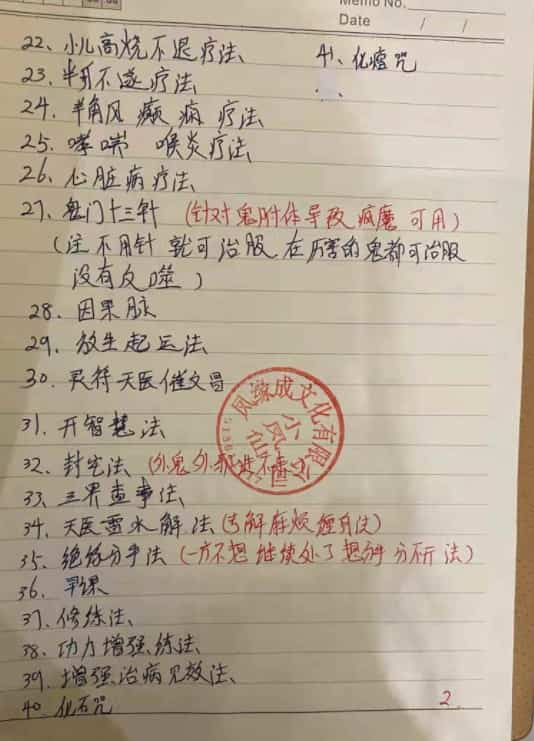 Memo No.
Date / /
22、小儿高烧不退疗法、
41、化痞咒
23、半身不遂疗法、
24、羊角风 癫痫 疗法、
25、哮喘 喉炎疗法、
26、心脏病疗法、
27、鬼门十三针 (针对鬼附体导致 疯魔 可用)
(注 不用针 就可治服 在厉害的鬼都可治服
没有反噬)
28、因果脉
29、放生起运法
30、灵符天医催文昌
31、开智慧法
32、封宅法 (外鬼外 进不
33、三界查事法、
34、天医雷水解法 (去解麻烦缠身法)
35、绝缘分手法 (一方不想继续处了 想 分 法)
36、早课
37、修练法、
38、功力增强练法、
39、增强治病见效法、
40、化石咒
凤缘成文化有限公司
小凤仙
2.